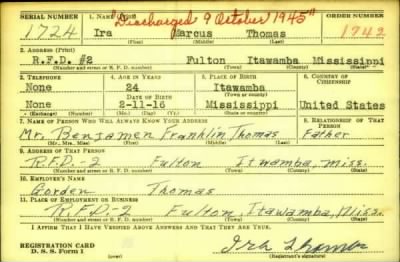 "Discharged 9 October 1945"
SERIAL NUMBER 1. NAME (Print) ORDER NUMBER
1724 Ira Marcus Thomas 1742
(First) (Middle) (Last)
2. ADDRESS (Print)
R.F.D. #2 Fulton Itawamba Mississippi
(Number and street or R. F. D. number) (Town) (County) (State)
3. TELEPHONE 4. AGE IN YEARS 5. PLACE OF BIRTH 6. COUNTRY OF CITIZENSHIP
None 24 Itawamba
DATE OF BIRTH (Town or county)
None 2-11-16 Mississippi United States
(Exchange) (Number) (Mo.) (Day) (Yr.) (State or country)
7. NAME OF PERSON WHO WILL ALWAYS KNOW YOUR ADDRESS 8. RELATIONSHIP OF THAT PERSON
Mr. Benjamen Franklin Thomas Father
(Mr., Mrs., Miss) (First) (Middle) (Last)
9. ADDRESS OF THAT PERSON
R.F.D.-2 Fulton Itwamba, Miss.
(Number and street or R. F. D. number) (Town) (County) (State)
10. EMPLOYER'S NAME
Gorden Thomas
11. PLACE OF EMPLOYMENT OR BUSINESS
R.F.D-2 Fulton, Itawamba, Miss.
(Number and street or R. F. D. number) (Town) (County) (State)
I AFFIRM THAT I HAVE VERIFIED ABOVE ANSWERS AND THAT THEY ARE TRUE.
REGISTRATION CARD
D. S. S. Form 1 Ira Thomas
(Registrant's signature)